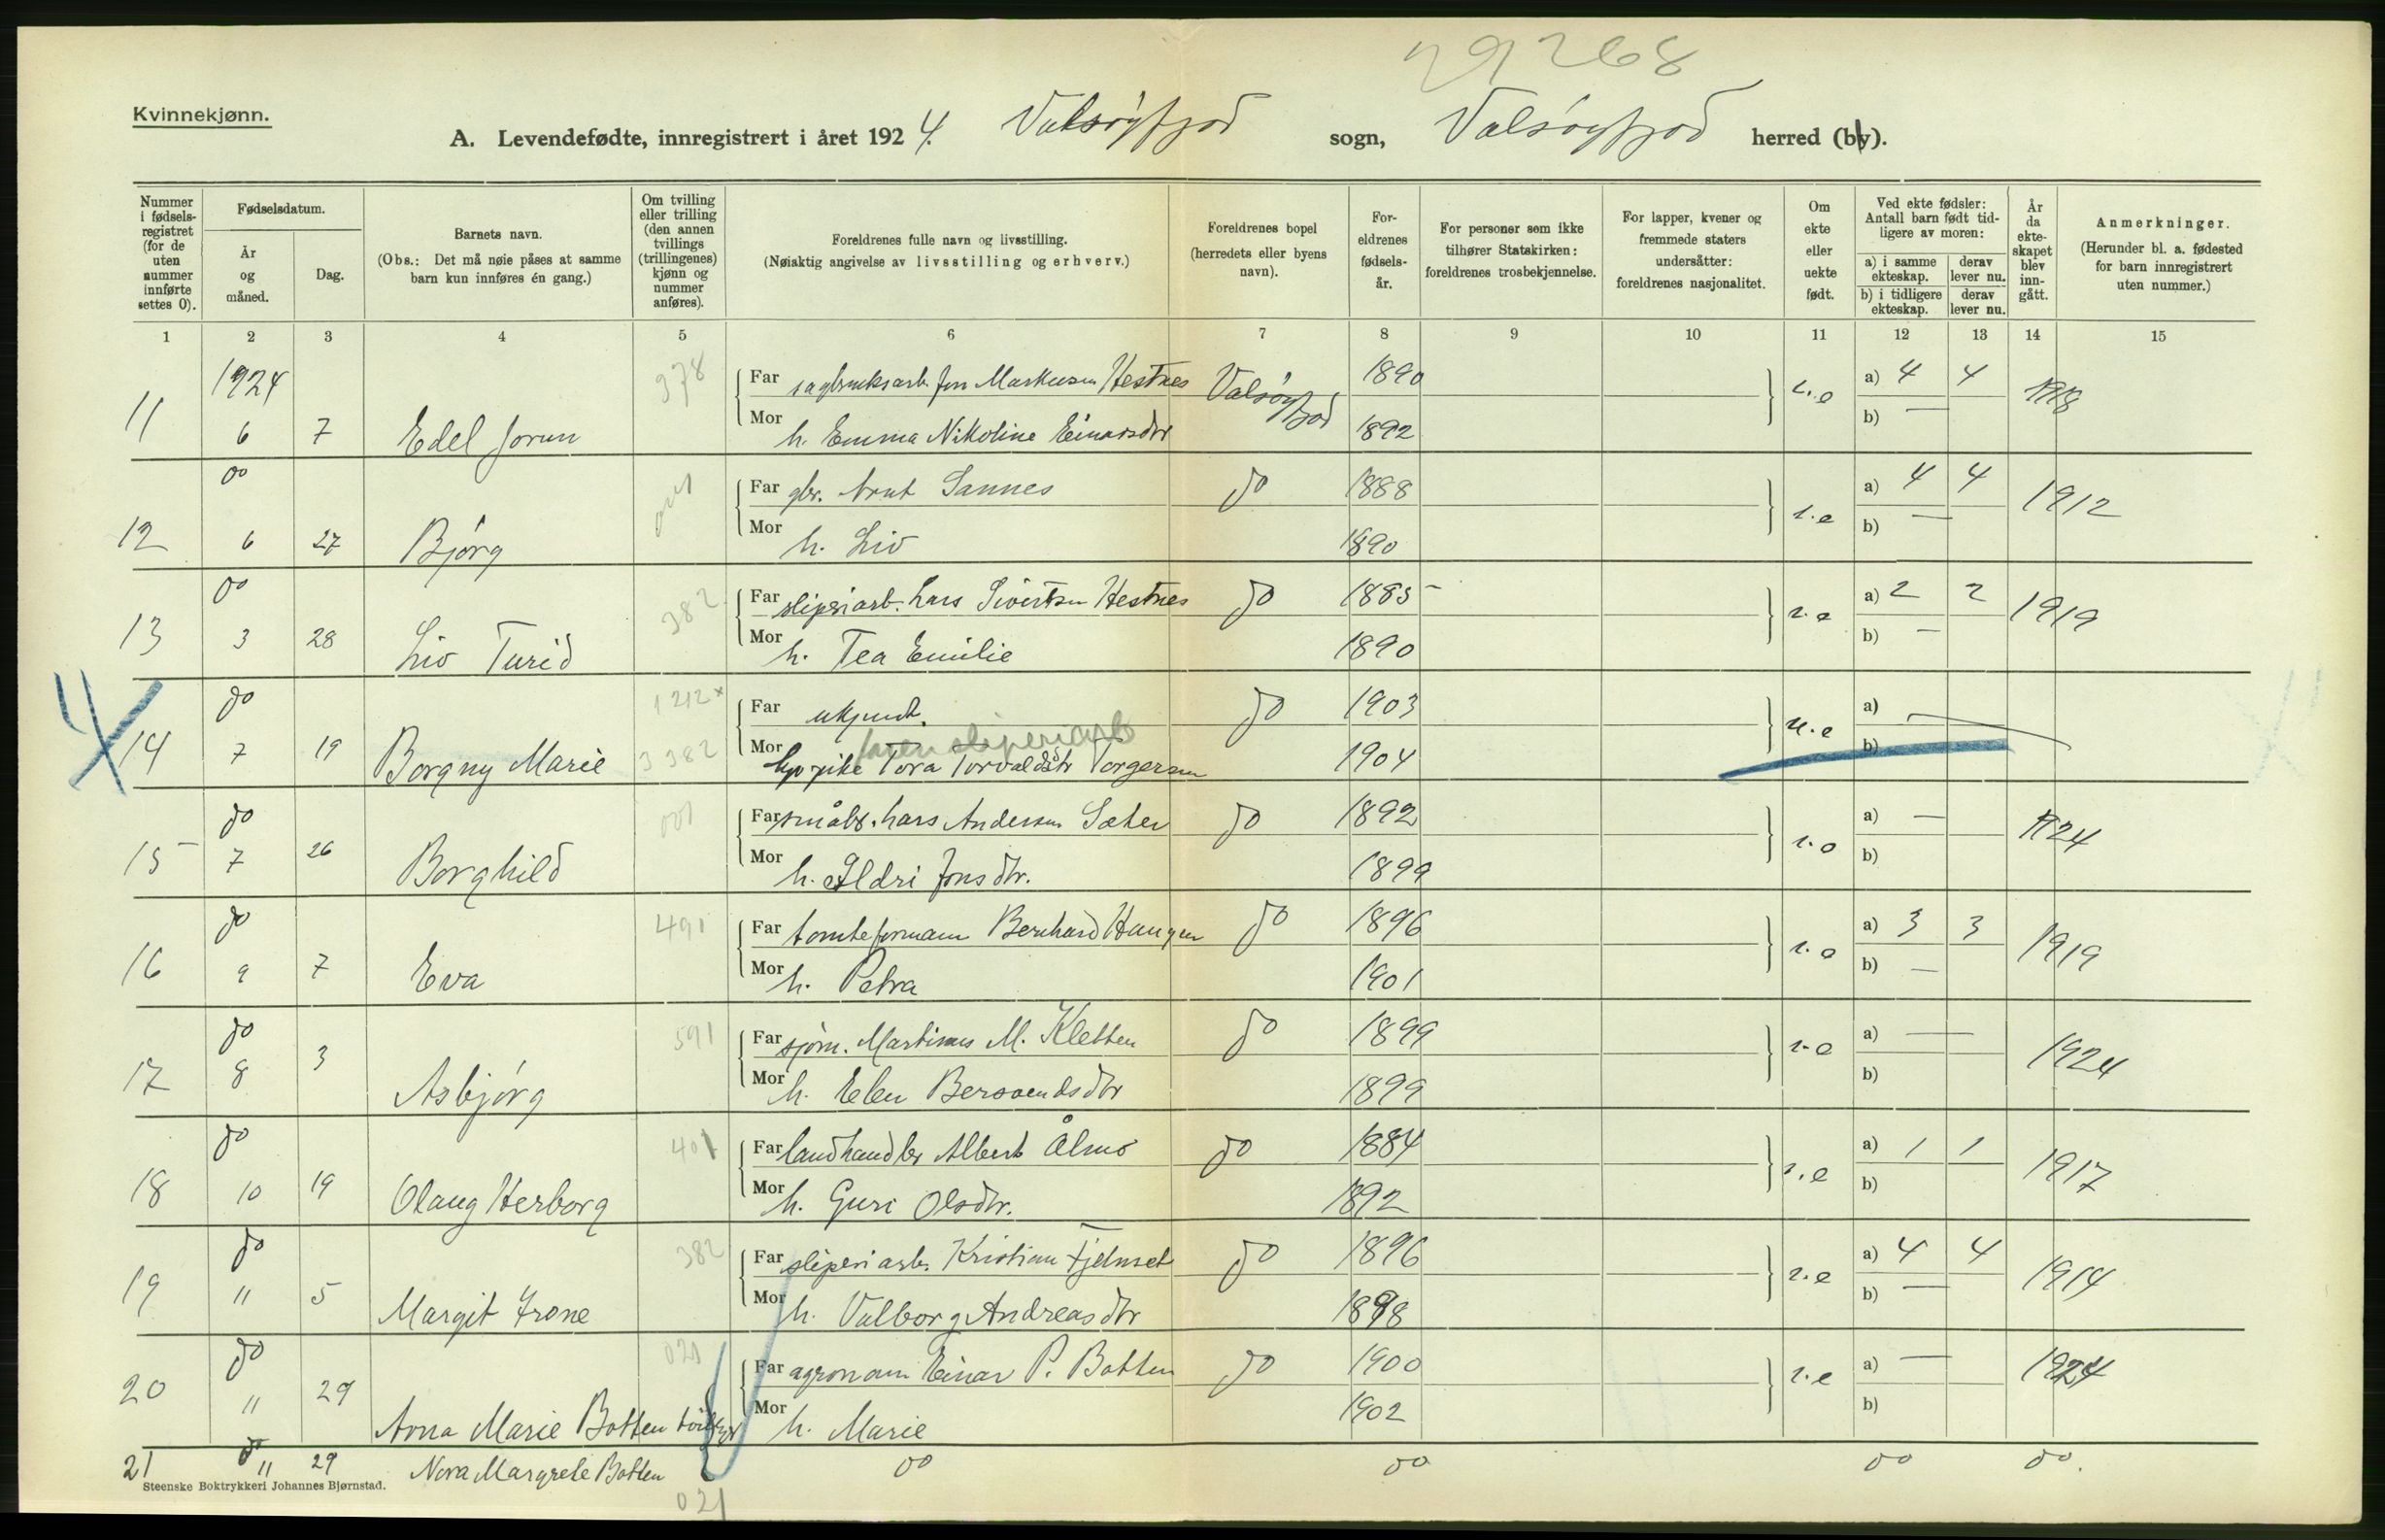 29268
Kvinnekjønn.
A. Levendefødte, innregistrert i året 1924. Valsøyfjord sogn, Valsøyfjord herred (by).
Nummer i fødselsregistret (for de uten nummer innførte settes 0).
Fødselsdatum.
År og måned.
Dag.
Barnets navn.
(Obs.: Det må nøie påses at samme barn kun innføres én gang.)
Om tvilling eller trilling (den annen tvillings (trillingenes) kjønn og nummer anføres).
Foreldrenes fulle navn og livsstilling.
(Nøiaktig angivelse av livsstilling og erhverv.)
Foreldrenes bopel (herredets eller byens navn).
Foreldrenes fødselsår.
For personer som ikke tilhører Statskirken: foreldrenes trosbekjennelse.
For lapper, kvener og fremmede staters undersåtter: foreldrenes nasjonalitet.
Om ekte eller uekte født.
Ved ekte fødsler: Antall barn født tidligere av moren:
a) i samme ekteskap. derav lever nu.
b) i tidligere ekteskap. derav lever nu.
År da ekteskapet blev inngått.
Anmerkninger.
(Herunder bl. a. fødested for barn innregistrert uten nummer.)
1 2 3 4 5 6 7 8 9 10 11 12 13 14 15
1924 378 Far sagbruksarb. Jon Markussen Hestnes Valsøyfjord 1890 a) 4 4 1918
11 6 7 Edel Jorun Mor h. Emma Nikoline Einarsdtr 1892 b) —
do Far gbr. Arnt Sannes do 1888 i.e a) 4 4 1912
12 6 27 Bjørg Mor h. Liv 1890 b) —
do 382 Far sliperiarb. Lars Sivertsen Hestnes do 1885 a) 2 2 1919
13 3 28 Liv Turid Mor h. Tea Emilie 1890 b) —
do 1212 x Far ukjent. do 1903 u.e a) —
14 7 19 Borgny Marie 3382 Mor pike Tora Torvaldsdtr Torgersen 1904 b)
do 001 Far småbr. Lars Andersen Sæter do 1892 a) — 1924
15 7 26 Borghild Mor h. Ildri Jonsdtr. 1899 b)
do 491 Far tomteformann Bernhard Haugen do 1896 a) 3 3 1919
16 9 7 Eva Mor h. Petra 1901 b) —
do 591 Far sjøm. Martinus M. Kletten do 1899 a) — 1924
17 8 3 Asbjørg Mor h. Elen Bersvendsdtr 1899 b)
do 401 Far landhandler Albert Ålmo do 1884 a) 1 1 1917
18 10 19 Olaug Herborg Mor h. Guri Olsdtr. 1892 b)
do 382 Far sliperiarb. Kristian Fjelnset do 1896 a) 4 4 1914
19 11 5 Margit Irene Mor h. Valborg Andreasdtr 1898 b) —
do 021 Far agronom Einar P. Botten do 1900 a) — 1924
20 11 29 Anna Marie Botten tvilling Mor h. Marie 1902 b)
21 do 11 29 Nora Margrete Botten do do do do.
Steenske Boktrykkeri Johannes Bjørnstad.
021